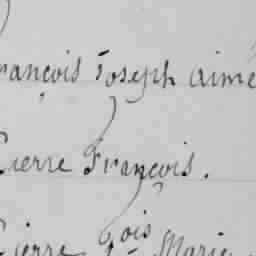 rançois Joseph Aimé
Pierre François.
Pierre
Marie